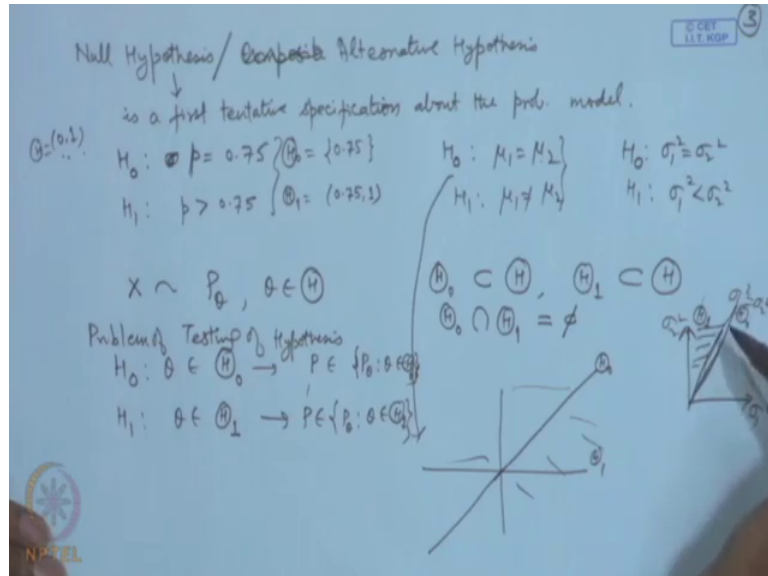 © CET
I.I.T. KGP
3
Null Hypothesis / Alternative Hypothesis
is a first tentative specification about the prob. model.
Ⓗ=(0,1)
H₀: p = 0.75 Ⓗ₀ = {0.75}
H₁: p > 0.75 Ⓗ₁ = (0.75,1)
H₀: μ₁ = μ₂
H₁: μ₁ ≠ μ₂
H₀: σ₁² = σ₂²
H₁: σ₁² < σ₂²
X ~ P_θ, θ ∈ Ⓗ
Ⓗ₀ ⊂ Ⓗ, Ⓗ₁ ⊂ Ⓗ
Ⓗ₀ ∩ Ⓗ₁ = φ
Problem of Testing of Hypothesis
H₀: θ ∈ Ⓗ₀ → P ∈ {P_θ: θ ∈ Ⓗ₀}
H₁: θ ∈ Ⓗ₁ → P ∈ {P_θ: θ ∈ Ⓗ₁}
Ⓗ₀
Ⓗ₁
σ₂²
NPTEL